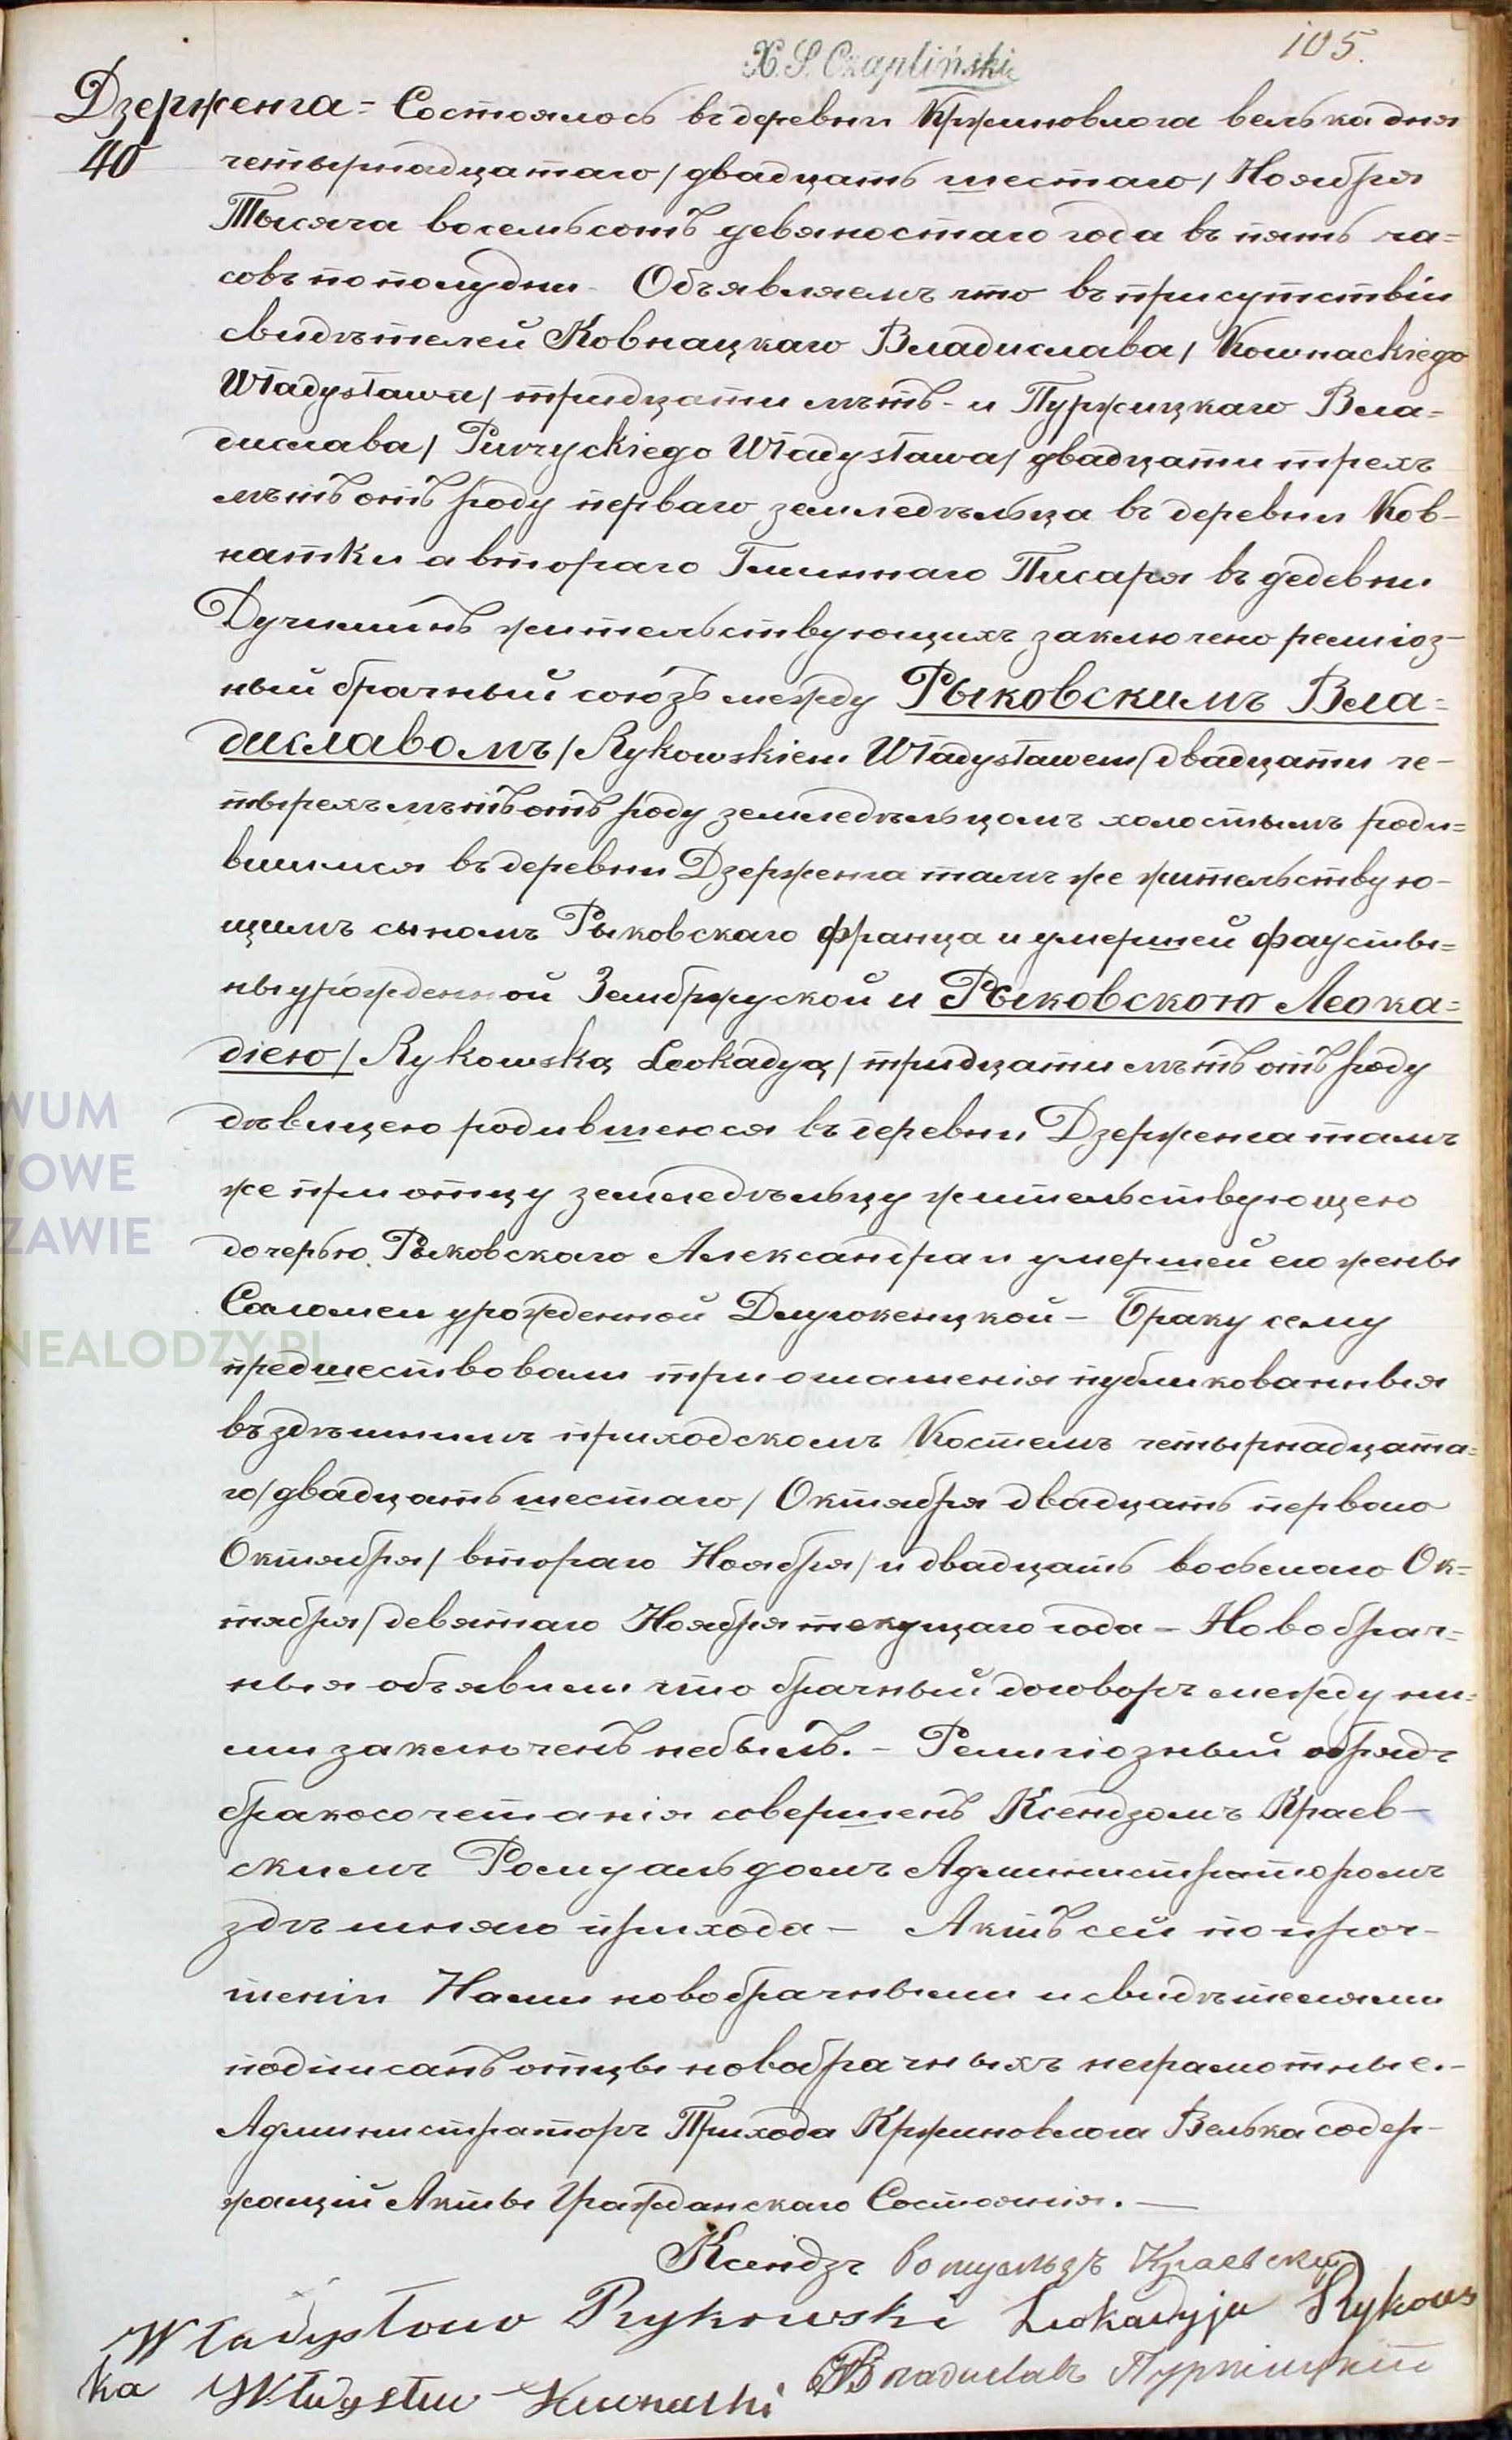 105.
X. S. Czapliński
Дзерженга = Состоялось въ деревни Кржиновлога велька дня
40 четырнадцатаго / двадцать шестаго / Ноября
Тысяча восемьсотъ девяностаго года въ пять ча=
совъ по полудни - Объявляемъ что въ присутствіи
свидѣтелей Ковнацкаго Владислава / Kownackiego
Władysława / тридцати лѣтъ - и Пуржицкаго Вла=
дислава / Purzyckiego Władysława / двадцати трехъ
лѣтъ отъ роду перваго земледѣльца въ деревни Ков-
натки а втораго Гминнаго Писаря въ дедевни
Дучиминъ жительствующихъ заключено религіоз-
ный брачный союзъ между Рыковскимъ Вла=
диславомъ / Rykowskiem Władysławem / двадцати че-
тырехъ лѣтъ отъ роду земледѣльцомъ холостымъ роди=
вшимся въ деревни Дзерженга тамъ же жительствую-
щимъ сыномъ Рыковскаго Франца и умершей Фаусты=
ны урожденной Зембржуской и Рыковскою Леока=
діею / Rykowską Leokadyą / тридцати лѣтъ отъ роду
дѣвицею родившеюся въ деревни Дзерженга тамъ
же при отцу земледѣльцу жительствующею
дочерью Рыковскаго Александра и умершей его жены
Саломеи урожденной Длугокенцкой - Браку сему
предшествовали три оглашенія публикованныя
въ здѣшнимъ приходскомъ Костелъ четырнадцата=
го / двадцать шестаго / Октября двадцать перваго
Октября / втораго Ноября / и двадцать восьмаго Ок=
тября / девятаго Ноября текущаго года - Новобрач=
ныя объявили что брачный договоръ между ни=
ми заключенъ небылъ. - Религіозный обрядъ
бракосочетанія совершенъ Ксендзомъ Краев-
скимъ Ромуальдомъ Администраторомъ
здѣшняго прихода - Актъ сей по проч-
тенiи Нами новобрачными и свидѣтелями
подписанъ отцы новобрачныхъ неграмотные. -
Администраторъ Прихода Кржиновлога Велька содер-
жащій Акты Гражданскаго Состоянія. -
Ксендзъ Ромуальдъ Краевскій
Władysław Rykowski Leokadyja Rykows
ka Władysław Kownacki Владиславъ Пуржицкій
WUM
WOWE
ZAWIE
NEALODZY.PL